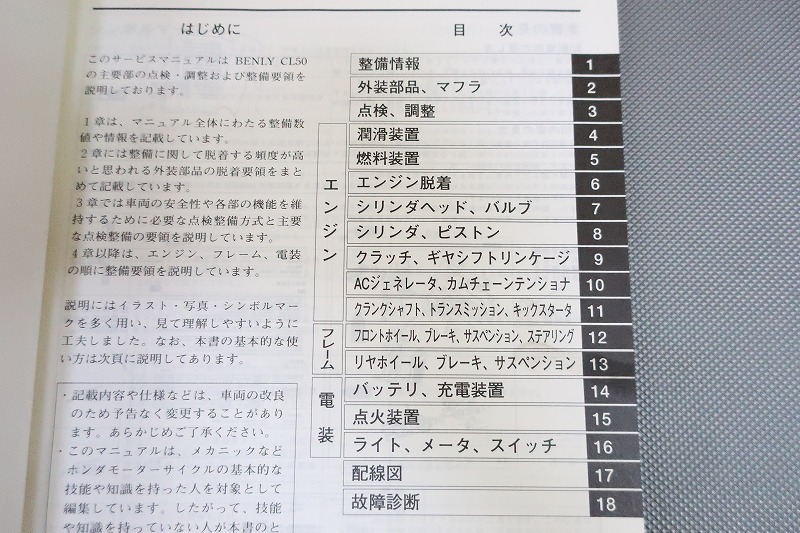 はじめに
このサービスマニュアルは BENLY CL50
の主要部の点検・調整および整備要領を
説明しております。
1章は、マニュアル全体にわたる整備数
値や情報を記載しています。
2章には整備に関して脱着する頻度が高
いと思われる外装部品の脱着要領をまと
めて記載しています。
3章では車両の安全性や各部の機能を維
持するために必要な点検整備方式と主要
な点検整備の要領を説明しています。
4章以降は、エンジン、フレーム、電装
の順に整備要領を説明しています。
説明にはイラスト・写真・シンボルマー
クを多く用い、見て理解しやすいように
工夫しました。なお、本書の基本的な使
い方は次頁に説明してあります。
・記載内容や仕様などは、車両の改良
のため予告なく変更することがあり
ます。あらかじめご了承ください。
・このマニュアルは、メカニックなど
ホンダモーターサイクルの基本的な
技能や知識を持った人を対象として
編集しています。したがって、技能
や知識を持っていない人が本書のと
目 次
整備情報 1
外装部品、マフラ 2
点検、調整 3
エンジン
潤滑装置 4
燃料装置 5
エンジン脱着 6
シリンダヘッド、バルブ 7
シリンダ、ピストン 8
クラッチ、ギヤシフトリンケージ 9
ACジェネレータ、カムチェーンテンショナ 10
クランクシャフト、トランスミッション、キックスタータ 11
フレーム
フロントホイール、ブレーキ、サスペンション、ステアリング 12
リヤホイール、ブレーキ、サスペンション 13
電装
バッテリ、充電装置 14
点火装置 15
ライト、メータ、スイッチ 16
配線図 17
故障診断 18